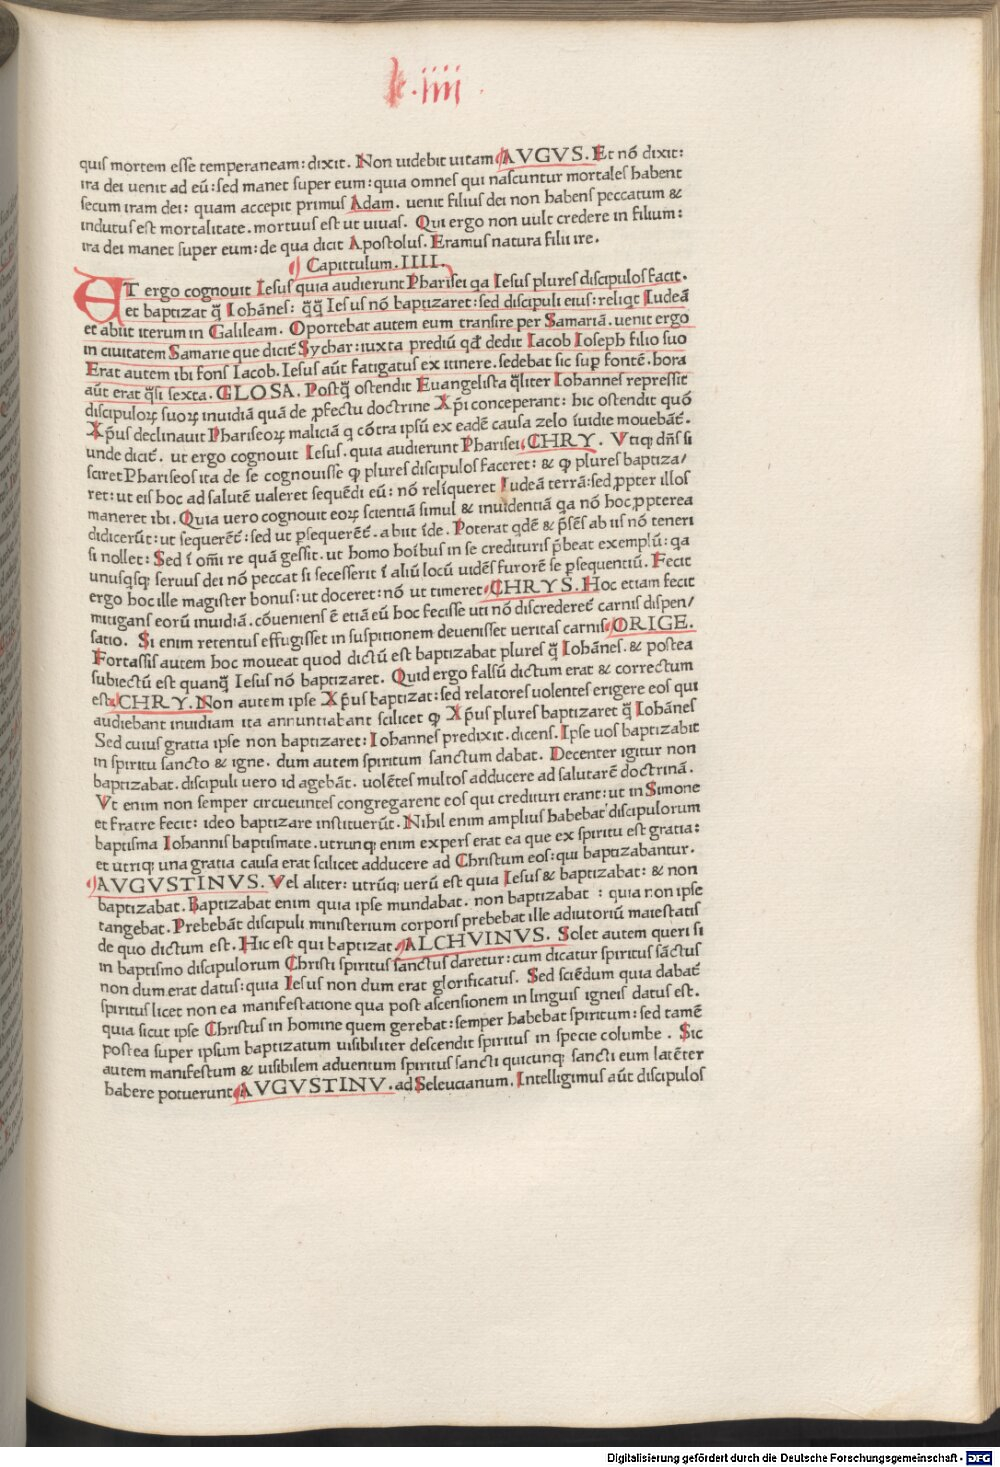 k·iiii
quiſ mortem eſſe temperaneam: dixit. Non uidebit uitam AVGVS. Et nō dixit:
ira dei uenit ad eū: ſed manet ſuper eum: quia omneſ qui naſcuntur mortaleſ habent
ſecum iram dei: quam accepit primuſ Adam. uenit filiuſ dei non habenſ peccatum &
indutuſ eſt mortalitate. mortuuſ eſt ut uiuaſ. Qui ergo non uult credere in filium:
ira dei manet ſuper eum: de qua dicit Apoſtoluſ. Eramuſ natura filii ire.
Capittulum. IIII.
ET ergo cognouit Ieſuſ quia audierunt Phariſei qa Ieſuſ plureſ diſcipuloſ facit.
et baptizat q̄ Iohāneſ: q̄q̄ Ieſuſ nō baptizaret: ſed diſcipuli eiuſ: reliqt Iudeā
et abiit iterum in Galileam. Oportebat autem eum tranſire per Samariā. uenit ergo
in ciuitatem Samarie que dicit̄ Sychar: iuxta prediū qd̄ dedit Iacob Ioſeph filio ſuo
Erat autem ibi fonſ Iacob. Ieſuſ aūt fatigatuſ ex itinere. ſedebat ſic ſup̄ fontē. hora
aūt erat q̄ſi ſexta. GLOSA. Poſtq̄ oſtendit Euangeliſta q̄liter Iohanneſ repreſſit
diſcipuloꝝ ſuoꝝ inuidiā quā de ꝓfectu doctrine Xp̄i conceperant: hic oſtendit quō
Xp̄uſ declinauit Phariſeoꝝ maliciā q cōtra ipſū ex eadē cauſa zelo īuidie mouebāt̄.
unde dicit̄. ut ergo cognouit Ieſuſ. quia audierunt Phariſei. CHRY. Vtiqꝫ dn̄ſ ſi
ſciret Phariſeoſ ita de ſe cognouiſſe ꝙ plureſ diſcipuloſ faceret: & ꝙ plureſ baptiza/
ret: ut eiſ hoc ad ſalutē ualeret ſequēdi eū: nō relīqueret Iudeā terrā: ſed ꝓpter illoſ
maneret ibi. Quia uero cognouit eoꝝ ſcientiā ſimul & inuidentiā qa nō hoc ꝓpterea
didicerūt: ut ſequerēt̄: ſed ut ꝑſequerēt̄. abiit īde. Poterat qdē & p̄ſēſ ab iiſ nō teneri
ſi nollet: Sed ī om̄i re quā geſſit. ut homo hoībuſ in ſe credituriſ p̄beat exemplū: qa
unuſqſqꝫ ſeruuſ dei nō peccat ſi ſeceſſerit ī aliū locū uidēſ furorē ſe ꝑſequentiū. Fecit
ergo hoc ille magiſter bonuſ: ut doceret: nō ut timeret. CHRYS. Hoc etiam fecit
mitiganſ eorū inuidiā. cōuenienſ ē etiā eū hoc feciſſe uti nō diſcrederet̄ carniſ diſpen/
ſatio. Si enim retentuſ effugiſſet in ſuſpitionem deueniſſet ueritaſ carniſ. ORIGE.
Fortaſſiſ autem hoc moueat quod dictū eſt baptizabat plureſ q̄ Iohāneſ. & poſtea
ſubiectū eſt quanq̄ Ieſuſ nō baptizaret. Quid ergo falſū dictum erat & correctum
eſt: CHRY. Non autem ipſe Xp̄uſ baptizat: ſed relatoreſ uolenteſ erigere eoſ qui
audiebant inuidiam ita annuntiabant ſcilicet ꝙ Xp̄uſ plureſ baptizaret q̄ Iohāneſ
Sed cuiuſ gratia ipſe non baptizaret: Iohanneſ predixit. dicenſ. Ipſe uoſ baptizabit
in ſpiritu ſancto & igne. dum autem ſpiritum ſanctum dabat. Decenter igitur non
baptizabat. diſcipuli uero id agebāt. uolēteſ multoſ adducere ad ſalutarē doctrinā.
Vt enim non ſemper circueunteſ congregarent eoſ qui credituri erant: ut in Simone
et fratre fecit: ideo baptizare inſtituerūt. Nihil enim ampliuſ habebat diſcipulorum
baptiſma Iohanniſ baptiſmate. utrunqꝫ enim experſ erat ea que ex ſpiritu eſt gratia:
et utriqꝫ una gratia cauſa erat ſcilicet adducere ad Chriſtum eoſ: qui baptizabantur.
AVGVSTINVS. Vel aliter: utrūqꝫ uerū eſt quia Ieſuſ & baptizabat: & non
baptizabat. Baptizabat enim quia ipſe mundabat. non baptizabat : quia non ipſe
tangebat. Prebebāt diſcipuli miniſterium corporiſ prebebat ille adiutoriū maieſtatiſ
de quo dictum eſt. Hic eſt qui baptizat. ALCHVINVS. Solet autem queri ſi
in baptiſmo diſcipulorum Chriſti ſpirituſ ſanctuſ daretur: cum dicatur ſpirituſ ſāctuſ
non dum erat datuſ: quia Ieſuſ non dum erat glorificatuſ. Sed ſciēdum quia dabat̄
ſpirituſ licet non ea manifeſtatione qua poſt aſcenſionem in linguiſ igneiſ datuſ eſt.
quia ſicut ipſe Chriſtuſ in homine quem gerebat: ſemper habebat ſpiritum: ſed tamē
poſtea ſuper ipſum baptizatum uiſibiliter deſcendit ſpirituſ in ſpecie columbe . Sic
autem manifeſtum & uiſibilem aduentum ſpirituſ ſancti quicunqꝫ ſancti eum latēter
habere potuerunt. AVGVSTINV. ad Seleucianum. Intelligimuſ aūt diſcipuloſ
Digitalisierung gefördert durch die Deutsche Forschungsgemeinschaft - DFG